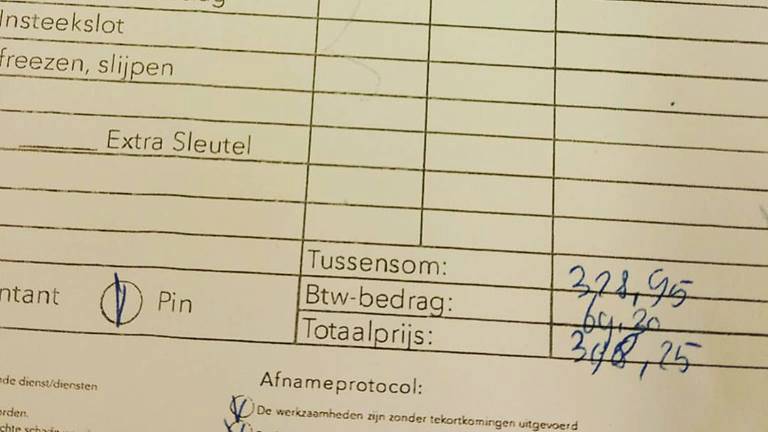 Insteekslot
freezen, slijpen
_____ Extra Sleutel
Tussensom: 328,95
ntant Pin Btw-bedrag: 69,30
Totaalprijs: 398,25
de dienst/diensten Afnameprotocol:
De werkzaamheden zijn zonder tekortkomingen uitgevoerd
rden.